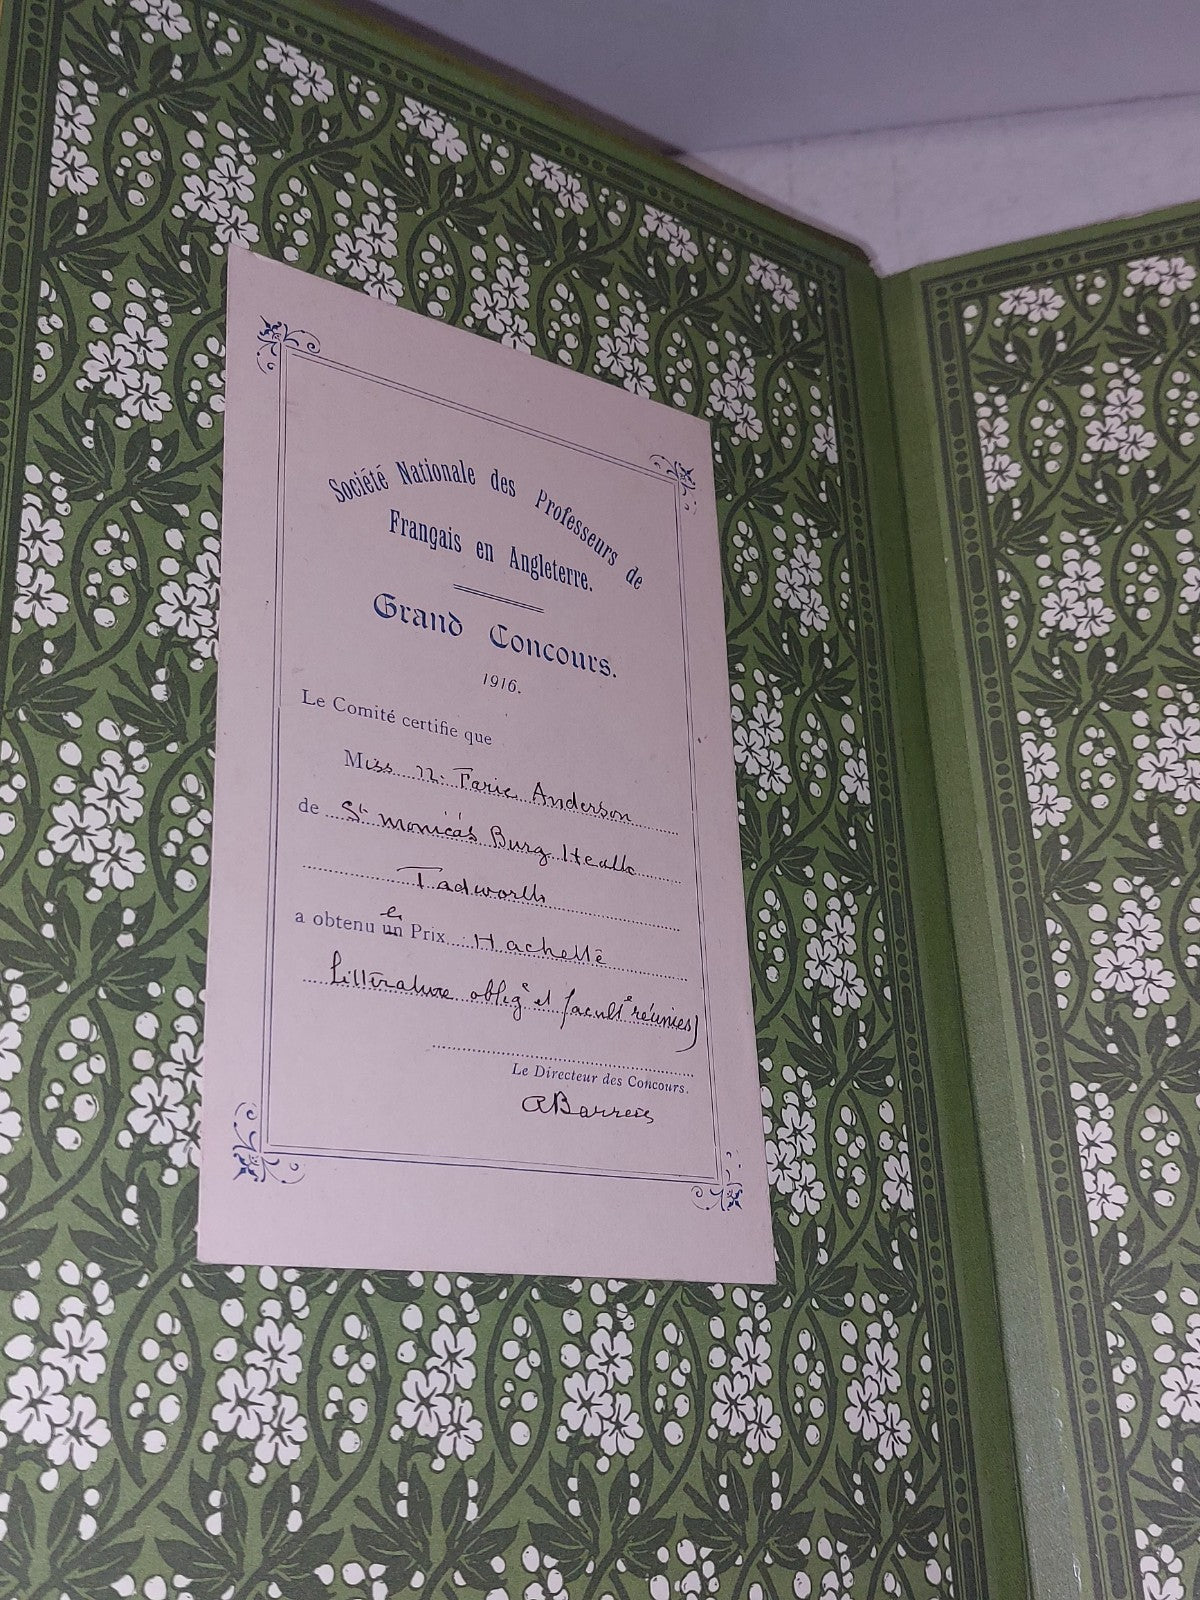 Société Nationale des Professeurs de
Français en Angleterre.
Grand Concours.
1916.
Le Comité certifie que
Miss N. Farie Anderson
de St Monica's Burg Heath
Tadworth
a obtenu un le Prix Hachette
Littérature obligᵉ et facultᵉ réunies)
Le Directeur des Concours.